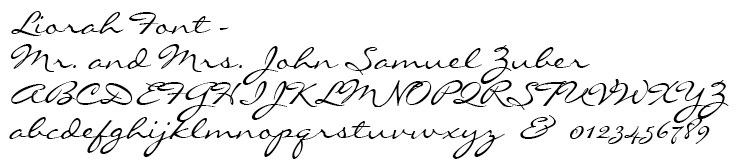 Liorah Font -
Mr. and Mrs. John Samuel Zuber
ABCDEFGHIJKLMNOPQRSTUVWXYZ
abcdefghijklmnopqrstuvwxyz & 0123456789